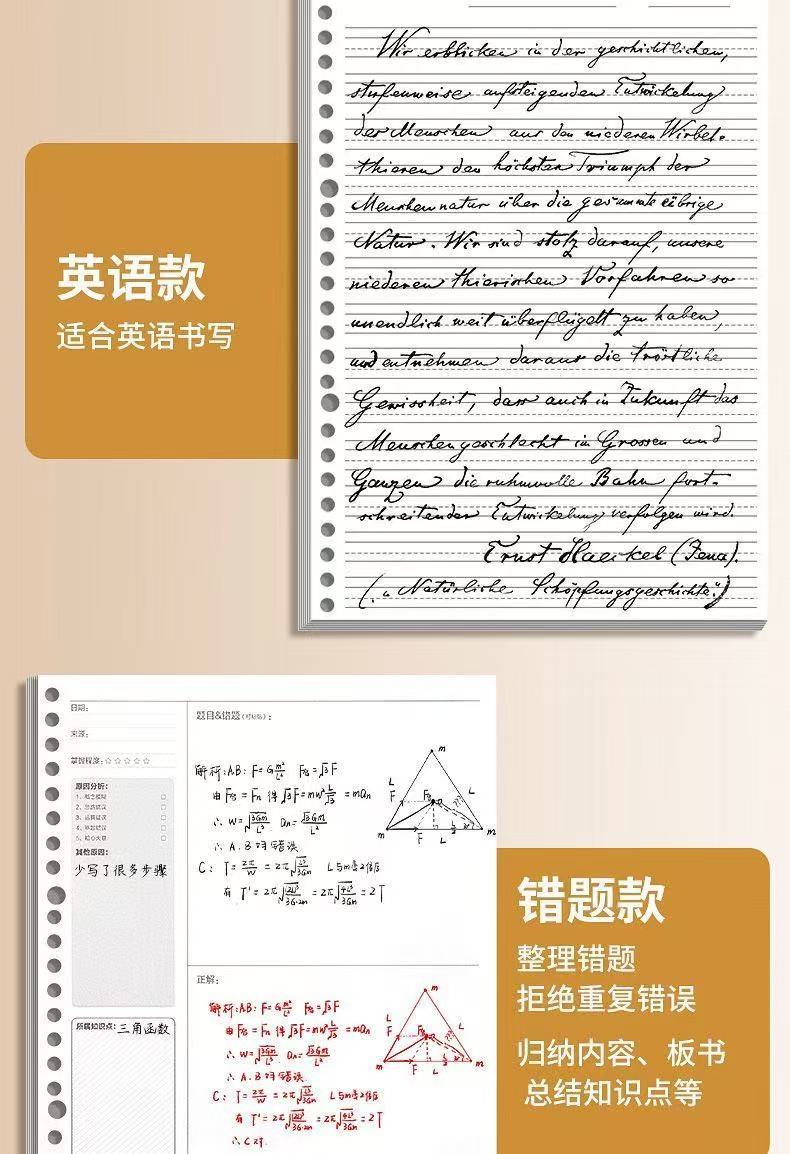 英语款
适合英语书写
Wir erblicken in der geschichtlichen,
stufenweise aufsteigenden Entwickelung
des Menschen aus den niederen Wirbel-
thieren den höchsten Triumph der
Menschennatur über die gesammte übrige
Natur. Wir sind stolz darauf, unsere
niederen thierischen Vorfahren so
unendlich weit überflügelt zu haben,
und entnehmen daraus die tröstliche
Gewissheit, dass auch in Zukunft das
Menschengeschlecht im Grossen und
Ganzen die ruhmvolle Bahn fort-
schreitender Entwickelung verfolgen wird.
Ernst Haeckel (Jena).
(„Natürliche Schöpfungsgeschichte“)
日期:
来源:
掌握程度:☆☆☆☆☆
原因分析:
1、概念模糊
2、思路错误
3、运算错误
4、审题错误
5、粗心大意
其他原因:
少写了很多步骤
所属知识点:三角函数
题目&错题(可粘贴):
解析:AB: F=G m²/L² F合=√3F
由F合=Fn 得√3F=mw² L/√3 =man
∴ W=√(3Gm/L³) an=√3Gm/L²
∴ A.B对错误
C: T=2π/W =2π√(L³/3Gm) L与m变2倍后
m
L
F
正解:
解析:AB: F=G m²/L² F合=√3F
由F合=Fn 得√3F=mw² L/√3 =man
∴ W=√(3Gm/L³) an=√3Gm/L²
∴ A.B对错误
C: T=2π/W =2π√(L³/3Gm) L与m变2倍后
∴ C对.
m
L
F
错题款
整理错题
拒绝重复错误
归纳内容、板书
总结知识点等